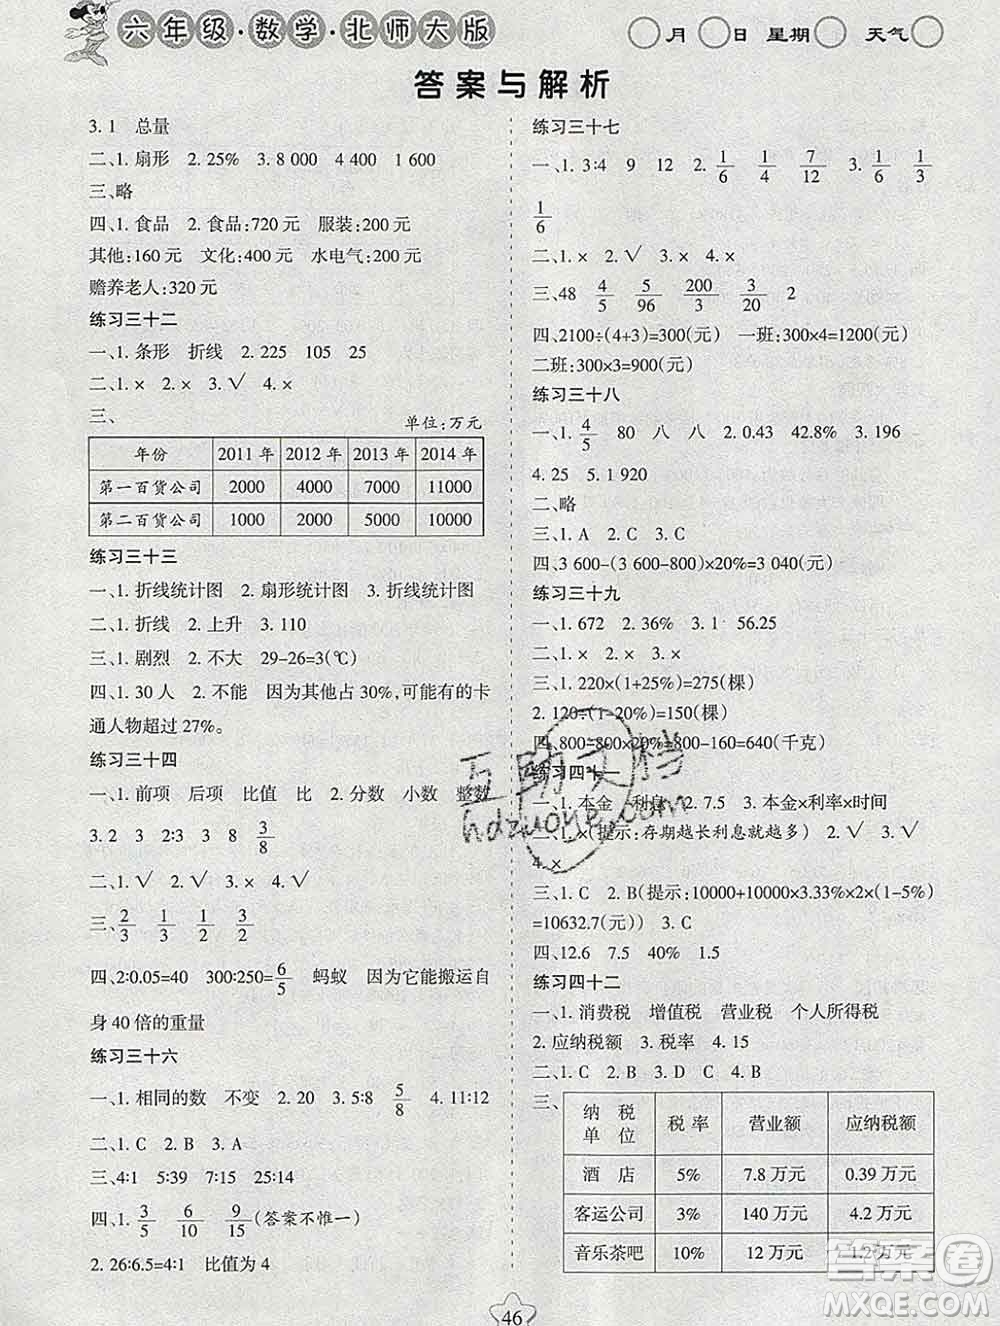 六年级·数学·北师大版
月 日 星期 天气
答案与解析
3. 1 总量
二、1. 扇形 2. 25% 3. 8 000 4 400 1 600
三、略
四、1. 食品 2. 食品:720 元 服装:200 元
其他:160 元 文化:400 元 水电气:200 元
赡养老人:320 元
练习三十二
一、1. 条形 折线 2. 225 105 25
二、1. × 2. × 3. √ 4. ×
三、 单位:万元
年份 2011 年 2012 年 2013 年 2014 年
第一百货公司 2000 4000 7000 11000
第二百货公司 1000 2000 5000 10000
练习三十三
一、1. 折线统计图 2. 扇形统计图 3. 折线统计图
二、1. 折线 2. 上升 3. 110
三、1. 剧烈 2. 不大 29-26=3(℃)
四、1. 30 人 2. 不能 因为其他占 30%,可能有的卡
通人物超过 27%。
练习三十四
一、1. 前项 后项 比值 比 2. 分数 小数 整数
3. 2 3 2∶3 3 8 3/8
二、1. √ 2. √ 3. × 4. × 5. √
三、2/3 1/3 1/2 2/3
四、2∶0.05=40 300∶250=6/5 蚂蚁 因为它能搬运自
身 40 倍的重量
练习三十六
一、1. 相同的数 不变 2. 20 3. 5∶8 5/8 4. 11∶12
二、1. C 2. B 3. A
三、4∶1 5∶39 7∶15 27∶14
四、1. 3/5 6/10 9/15 (答案不惟一)
2. 26∶6.5=4∶1 比值为 4
练习三十七
一、1. 3∶4 9 12 2. 1/6 1/4 7/12 3. 1/6 1/3
1/6
二、1. × 2. √ 3. × 4. ×
三、48 4/5 5/96 200/3 3/20 2
四、2100÷(4+3)=300(元) 一班:300×4=1200(元)
二班:300×3=900(元)
练习三十八
一、1. 4/5 80 八 八 2. 0.43 42.8% 3. 196
4. 25 5. 1 920
二、略
三、1. A 2. C 3. C
四、3 600-(3 600-800)×20%=3 040(元)
练习三十九
一、1. 672 2. 36% 3. 1 56.25
二、1. × 2. × 3. × 4. ×
三、1. 220×(1+25%)=275(棵)
2. 120÷(1-20%)=150(棵)
四、800-800×20%=800-160=640(千克)
练习四十一
一、1. 本金 利息 2. 7.5 3. 本金×利率×时间
二、1. ×(提示:存期越长利息就越多) 2. √ 3. √
4. ×
三、1. C 2. B(提示:10000+10000×3.33%×2×(1-5%)
=10632.7(元)) 3. C
四、12.6 7.5 40% 1.5
练习四十二
一、1. 消费税 增值税 营业税 个人所得税
2. 应纳税额 3. 税率 4. 15
二、1. D 2. A 3. C 4. B
三、
纳税单位 税率 营业额 应纳税额
酒店 5% 7.8 万元 0.39 万元
客运公司 3% 140 万元 4.2 万元
音乐茶吧 10% 12 万元
46
互助文档
hdzuoye.com
答案圈
MXQE.COM